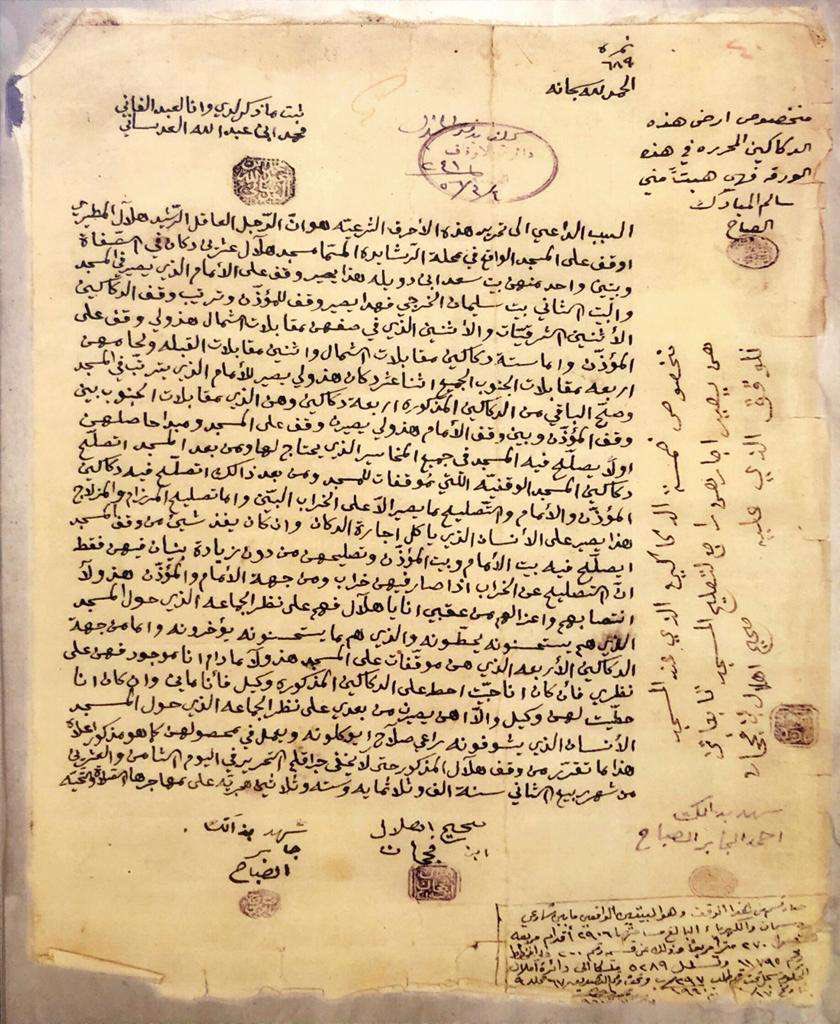 نمرة
٦٨٩
الحمد لله سبحانه
ثبت ما ذكر لدي وانا العبد الفاني
محمد ابن عبد الله العدساني
دائرة الاوقاف
مخصوص ارض هذه
الدكاكين المحرره في هذه
الورقه فهي هبت مني
سالم المبارك
الصباح
السبب الداعي الى تحرير هذه الأحرف الشرعيه هو انّ الرّجل العاقل الرّشيد هلال المطيري
اوقف على المسجد الواقع في محلة الرّشايده المسمّا مسجد هلال عشرين دكان في الصّفاة
وبيتين واحد منهن بيت سعد ابى دويله هذا يصير وقف على الأمام الذي يصير في المسجد
والبيت الثاني بيت سليمان الخرجي فهذا يصير وقف للمؤذّن وترتيب وقف الدكاكين
الأثنين الشرقيّات والأثنين الذي في صفهن مقابلات الشمال هذولي وقف على
المؤذّن واما ستة دكاكين مقابلات الشمال واثنين مقابلات القبله ولحامهن
اربعه مقابلات الجنوب الجميع اثنا عشر دكان هذولي يصير للأمام الذي يترتّب في المسجد
وصحّ الباقي من الدكاكين المذكوره اربعة دكاكين وهن الذي مقابلات الجنوب بين
وقف المؤذّن وبين وقف الأمام هذولي يصيرن وقف على المسجد ومبدا حاصلهن
اولاً يصلّح فيه المسجد في جميع المخاسير الذي يحتاج لها ومن بعد المسجد اتصلّح
دكاكين المسجد الوقفيّه اللّتي موقفات للمسجد ومن بعد ذالك اتصلّح فيه دكاكين
المؤذّن والأمام والتّصليح ما يصير الاّ على الخراب البيّن واما تصليح المرزام والمزلاج
هذا يصير على الأنسان الذي ياكل اجارة الدكان وان كان يفذ شيئ من وقف المسجد
ايصلّح فيه بيت الأمام وبيت المؤذّن وتصليحهن من دون زيادة بنيان فيهن فقط
انّ التصليح عن الخراب اذا صار فيهن خراب ومن جهة الأمام والمؤذّن هذولا
انتصابهم واعزالهم من عقبي انا يا هلال فهم على نظر الجماعه الذي حول المسجد
الذي هم يستحسنونه يحطّونه والذي هم ما يستحسنونه يؤخرونه واما من جهة
الدكاكين الأربعه الذي هن موقّفات على المسجد هذولا ما دام انا موجود فهن على
نظري فأن كان انا حبّيت احط على الدكاكين المذكوره وكيل فأنا مابي وان كان انا
حطّيت لهن وكيل والاّ اهن يصيرن من بعدي على نظر الجماعه الذي حول المسجد
الأنسان الذي يشوفونه راعي صلاح ايوكلونه ويعمل في محصولهن كما هو مذكور اعلاه
هذا ما تقرّر من وقف هلال المذكور حتى لا يخفى جرا قلم التحرير في اليوم الثامن والعشرين
من شهر ربيع الثاني سنة الف وثلاثمايه وسته وثلاثين هجريّه على مهاجرها الصّلاة والتحيّه
مخصوص خمسة الدكاكين الذي عند المسجد
هن يصير اجارهن راجع لتصليح المسجد تابعات
للوقف الذي عليه
صحيح اهلال ابن فجحان
صحيح اهلال
ابن فجحان
شهد بذالك
جابر
الصباح
شهد بذالك
احمد الجابر الصباح